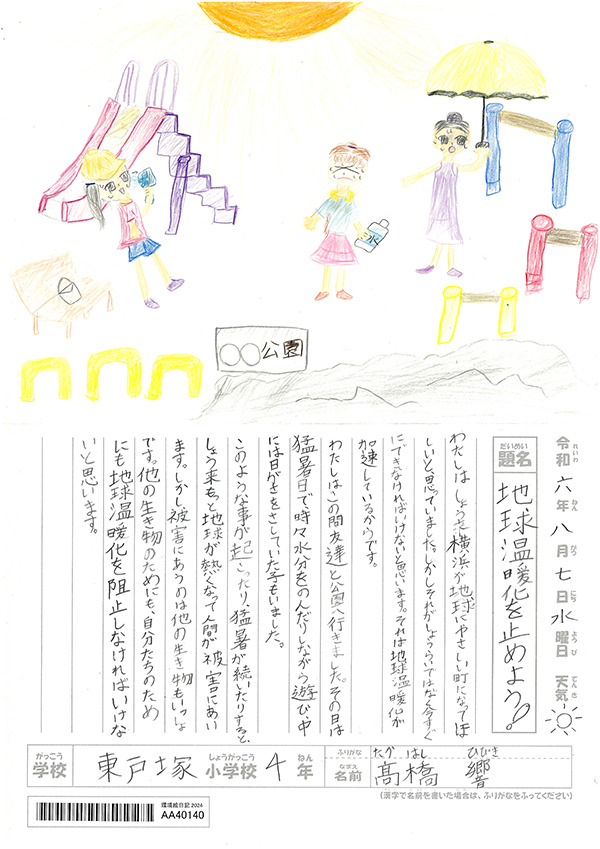 水
〇〇公園
令和六年八月七日水曜日 天気
れいわ ねん がつ にち ようび てんき
だいめい
題名 地球温暖化を止めよう!
わたしは、しょう来横浜が地球にやさしい町になってほ
しいと、思っていました。しかしそれがしょうらいではなく今すぐ
にできなければいけないと思います。それは地球温暖化が
加速しているからです。
わたしはこの間友達と公園へ行きました。その日は
猛暑日で時々水分をのんだりしながら遊び、中
には日がさをさしていた子もいました。
このような事が起こったり、猛暑が続いたりすると、
しょう来もっと地球が熱くなって人間が被害にあい
ます。しかし被害にあうのは他の生き物もいっしょ
です。他の生き物のためにも、自分たちのため
にも地球温暖化を阻止しなければいけな
いと思います。
がっこう しょうがっこう ねん
学校 東戸塚小学校 4年
ふりがな たか はし ひびき
なまえ
名前 髙橋 響
(漢字で名前を書いた場合は、ふりがなをふってください)
環境絵日記2024
AA40140